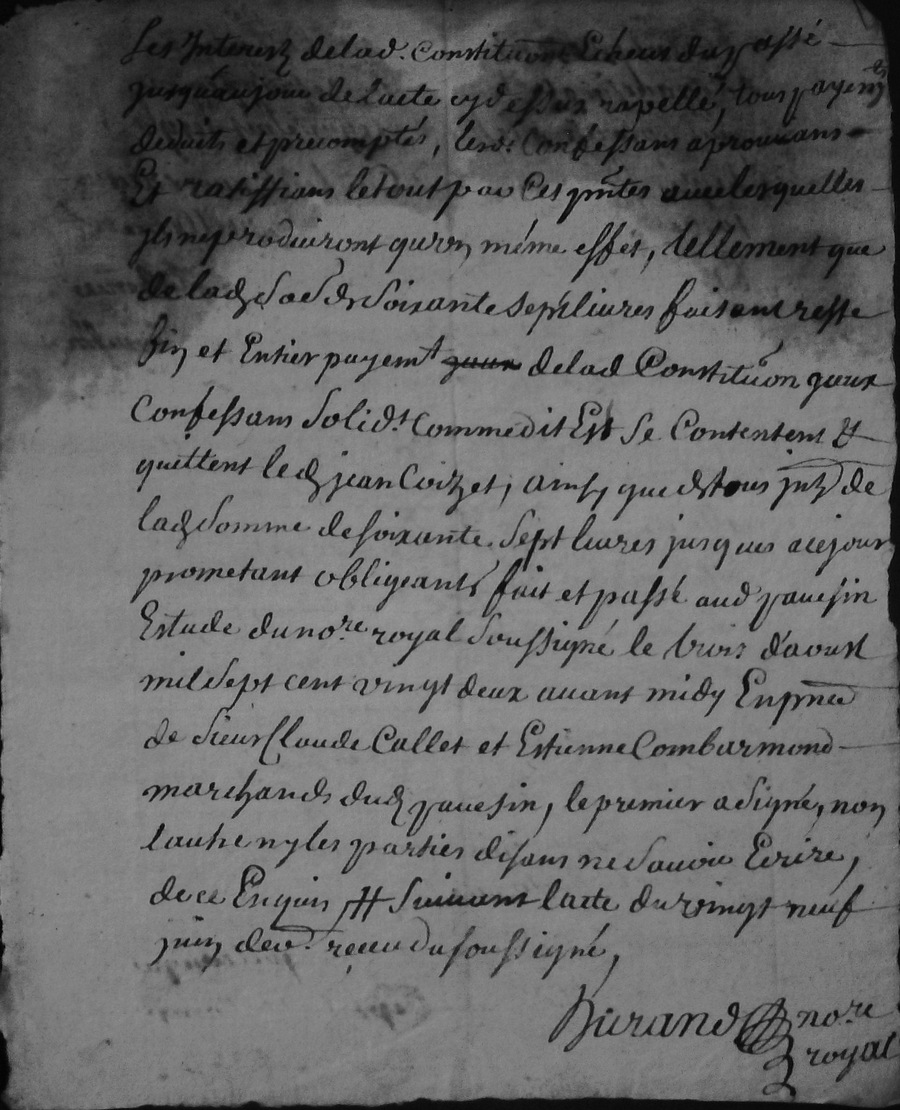 Les Interestz delad. constituon Echeus du passé
jusqu'aujour de l'acte cydessus rapellé, tous payemts
deduits et precomptés, lesd. Confessans aprouuans
Et ratiffians letout par Ces pntes aueclesquelles
jls neproduiront qu'un méme effet, tellement que
deladte So de Soixante sept liures faisant reste
fin et Entier payemt delad Constituon qeux
Confessans Solidt. Comme dit Est Se Contentent Et
quittent led jean Coizet, ainsy que de tous jntz de
lad Somme desoixante Sept liures jusques acejour
prometant obligeants fait et passé aud pauesin
Estude du nore royal Soussigné le trois d'aoust
mil Sept cent vingt deux auant midy Enpnce
de Sieur Claude Callet et Estienne Combarmond
marchands dud pauesin, le premier a Signé, non
lautre ny les parties disans ne Sauoir Ecrire,
de ce Enquis, # Suiuant lacte du vingt neuf
juin der. receu du soussigné,
Durand nore
royal